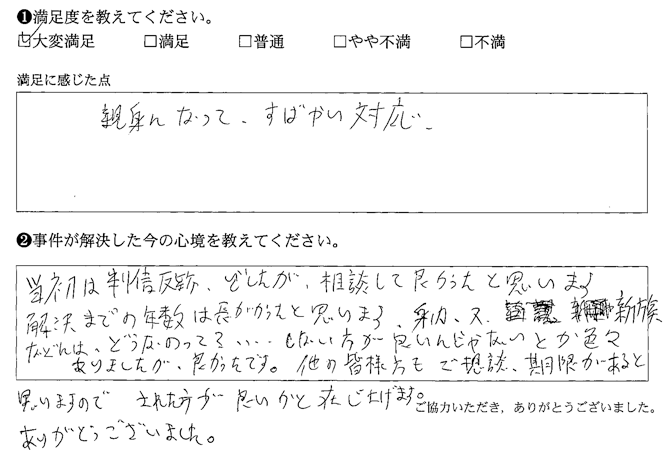 ❶満足度を教えてください。
☑大変満足 □満足 □普通 □やや不満 □不満
満足に感じた点
親身んなって、すばかい対応。
❷事件が解決した今の心境を教えてください。
当初は半信反疑、でしたが、相談して良かったと思います
解決までの年数は長がかったと思います、身内、又、新族
などんは、どうなのって?、・・・しない方が良いんじゃないとか色々
ありましたが、良かったです。他の皆様方もご相談、期限があると
思いますので された方が良いかと存じ上げます。
ご協力いただき、ありがとうございました。
ありがとうございました。